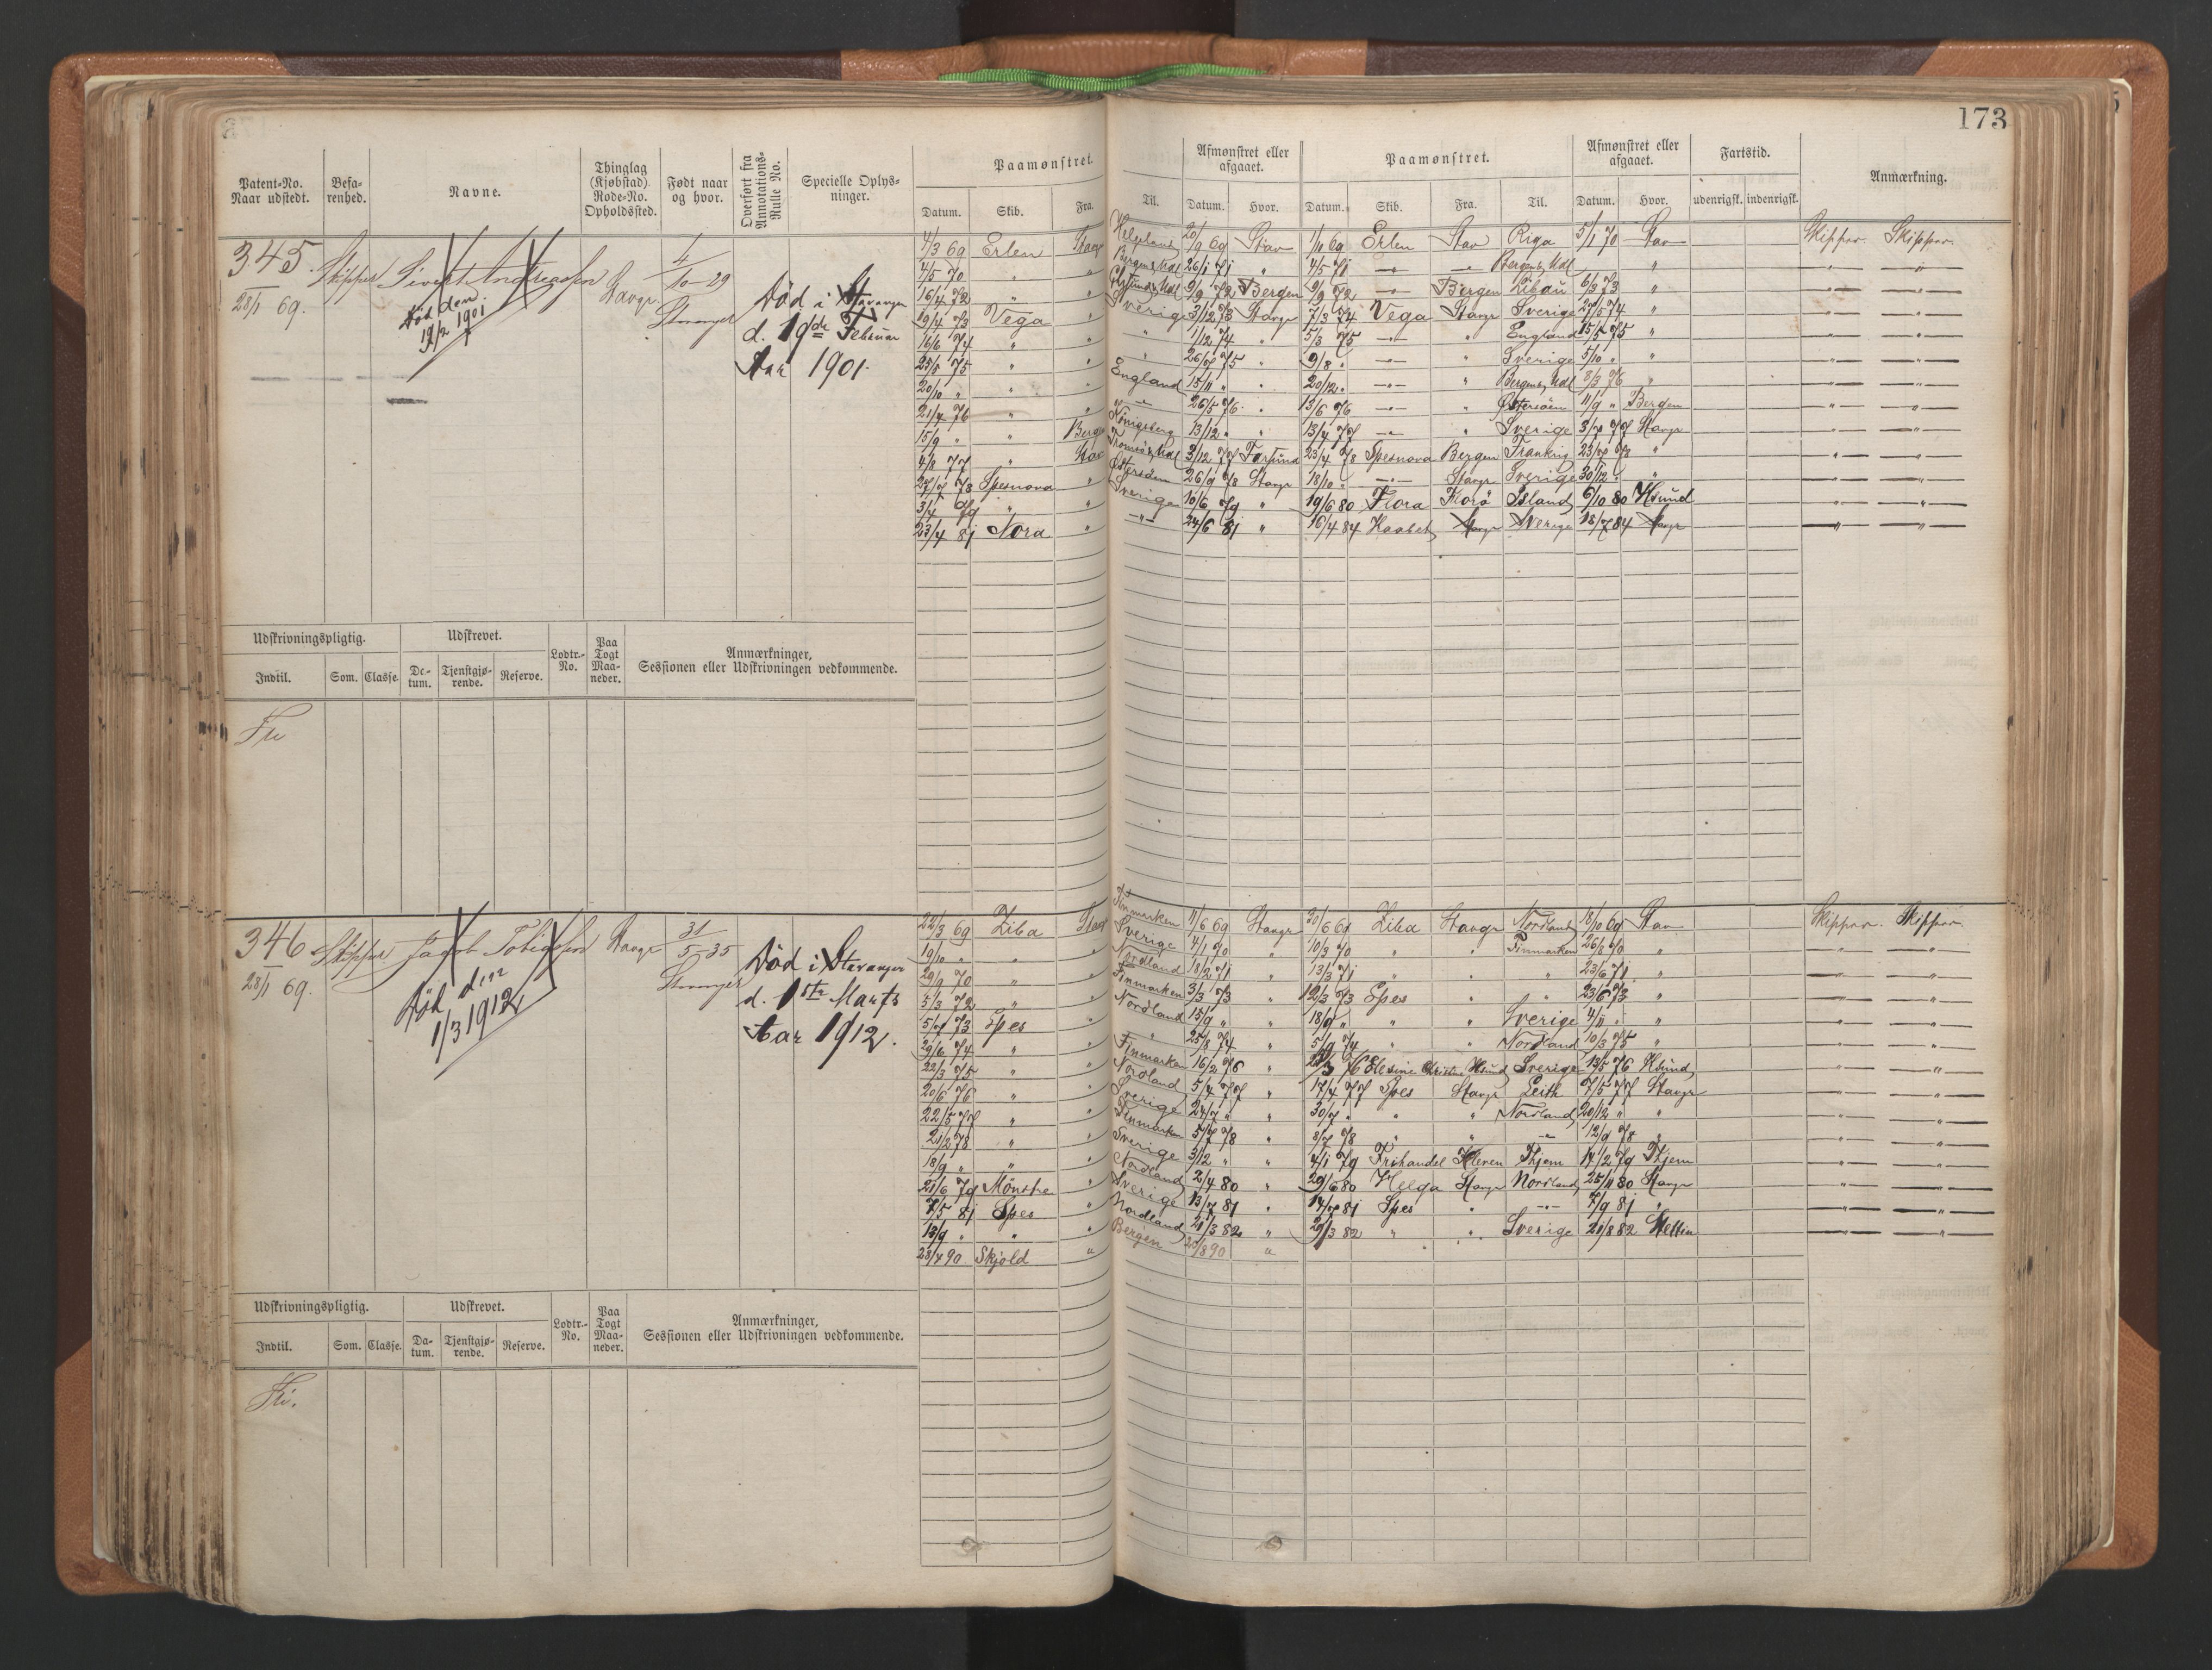 173
Patent-No. Naar udstedt.
Befarenhed.
Navne.
Thinglag (Kjøbstad) Rode-No. Opholdssted.
Født naar og hvor.
Overført fra Annotations-Rulle No.
Specielle Oplysninger.
Paamønstret.
Datum. Skib. Fra. Til.
Afmønstret eller afgaaet.
Datum. Hvor.
Paamønstret.
Datum. Skib. Fra. Til.
Afmønstret eller afgaaet.
Datum. Hvor.
Fartstid.
udenrigsk. indenrigsk.
Anmærkning.
345. Skipper Sivert Andreassen Stavgr 4/10-29 Stavanger
28/1 69.
Død den 19/2 1901.
Død i Stavanger
d. 19de Februar
Aar 1901.
4/3 69 Erlen Stavgr Helgeland 20/9 69 Stav 1/11 69 Erlen Stav Riga 5/1 70 Stav Skipper. Skipper.
4/5 70 " " 26/1 71 " 4/5 71 —"— —"— "
16/4 72 " " 9/9 72 Bergen 9/9 72 —"— Bergen Libau 6/3 73 "
19/4 73 Vega " Sverige 3/12 73 Stavgr 7/3 74 Vega Stavgr Sverige 74 "
16/6 74 " " " 1/12 74 " 5/3 75 —"— " England 75 "
75 " " " 75 " 9/8 " —"— " Sverige 5/10 " "
20/10 " " " England 15/11 " " 20/12 " —"— " 8/3 76 "
21/4 76 " " —"— 26/5 76 " 13/6 76 —"— " Østersøen 11/9 " Bergen
15/9 " " Bergen Königsberg 13/12 " " 13/4 77 —"— " Sverige 77 Stavgr
4/8 77 " Stav 3/12 77 Farsund 23/4 78 Spesnova Bergen Frankrig 78 "
78 Spesnova " Østersøen 26/9 78 Stavgr 18/10 " —"— Stavgr Sverige 30/12 " "
3/4 79 " " Sverige 10/6 79 " 19/6 80 Flora Florø Island 6/10 80 Hsund
23/4 81 Nora " —"— 24/6 81 " 16/4 84 Haabet Stavgr Sverige 18/7 84 Stavgr
Udskrivningspligtig. Udskrevet. Lodtr.-No. Paa Togt Maaneder. Anmærkninger, Sessionen eller Udskrivningen vedkommende.
Indtil. Som. Classe. Datum. Tjenstgjørende. Reserve.
Fri
346 Skipper Jacob Tobiassen Stavgr 31/5-35 Stavanger
28/1 69.
Død den 1/3 1912
Død i Stavanger
d. 1ste Marts
Aar 1912.
22/3 69 Ziba Stavgr Finmarken 11/6 69 Stavgr 30/6 69 Ziba Stavgr Nordland 18/10 69 Stav Skipper. Skipper.
19/10 " " " Sverige 4/1 70 " 10/3 70 " " Finmarken 70 "
29/9 70 " " Nordland 18/2 71 " 13/3 71 " " " 23/6 71 "
3/3 72 " " Finmarken 3/3 73 " 12/3 73 Spes " " 23/6 73 "
5/7 73 Spes " Nordland 15/9 " " 18/9 " " " Sverige 4/11 " "
29/6 74 " " " 25/8 74 " 5/9 74 " " Nordland 10/3 75 "
22/3 75 " " Finmarken 16/2 76 " 76 Elesine Christine Hsund Sverige 76 Hsund
20/6 76 " " Nordland 5/4 77 " 17/4 77 Spes Stavgr Leith 7/5 77 Stavgr
22/5 77 " " Sverige 24/7 " " 30/7 " " " Nordland 20/12 " "
21/2 78 " " Finmarken 5/7 78 " 8/7 78 " " —"— 12/9 78 "
18/9 " " " Sverige 3/12 " " 4/1 79 Frihandel Thjem 14/2 79 Thjem
21/6 79 Mönster " Nordland 2/4 80 " 29/6 80 Helga Stavgr Nordland 25/11 80 Stavgr
7/5 81 Spes " Sverige 13/7 81 " 14/7 81 Spes " —"— 7/9 81 "
13/9 " " " Nordland 21/3 82 " 29/3 82 " " Sverige 21/8 82 Stettin
28/4 90 Skjold " Bergen 20/8 90 "
Udskrivningspligtig. Udskrevet. Lodtr.-No. Paa Togt Maaneder. Anmærkninger, Sessionen eller Udskrivningen vedkommende.
Indtil. Som. Classe. Datum. Tjenstgjørende. Reserve.
Fri.